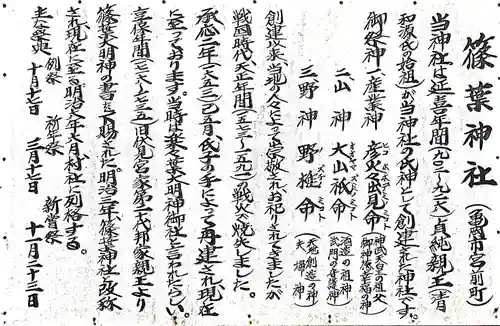 篠葉神社（亀岡市宮前町）
当神社は延喜年間（九〇一～九二二）貞純親王（清
和源氏の始祖）が当神社の氏神として創建された神社です。
御祭神 一、産業神 彦火々出見命（神武天皇の祖父 御神徳 幸福の神）
二、山神 大山祇命（酒造の祖神 武門の守護神）
三、野神 野椎命（天地創造の神 夫婦神）
創建以来当地の人々によって崇敬されお祀りされてきましたが
戦国時代、天正年間（一五七三～一五九一）の戦火で焼失しました。
承応二年（一六五三）五月氏子の手によって再建され現在
に至っております。当時は大明神御社と言われたらしい。
享保年間（一七一六～一七三五）旧伏見宮家第十六代邦家親王より
篠葉大明神の書を下賜された。明治三年篠葉神社に改称
され現在に至る。明治六年六月村社に列格する。
主な祭典 例祭 十月十七日 祈年祭 三月十七日 新嘗祭 十一月二十三日